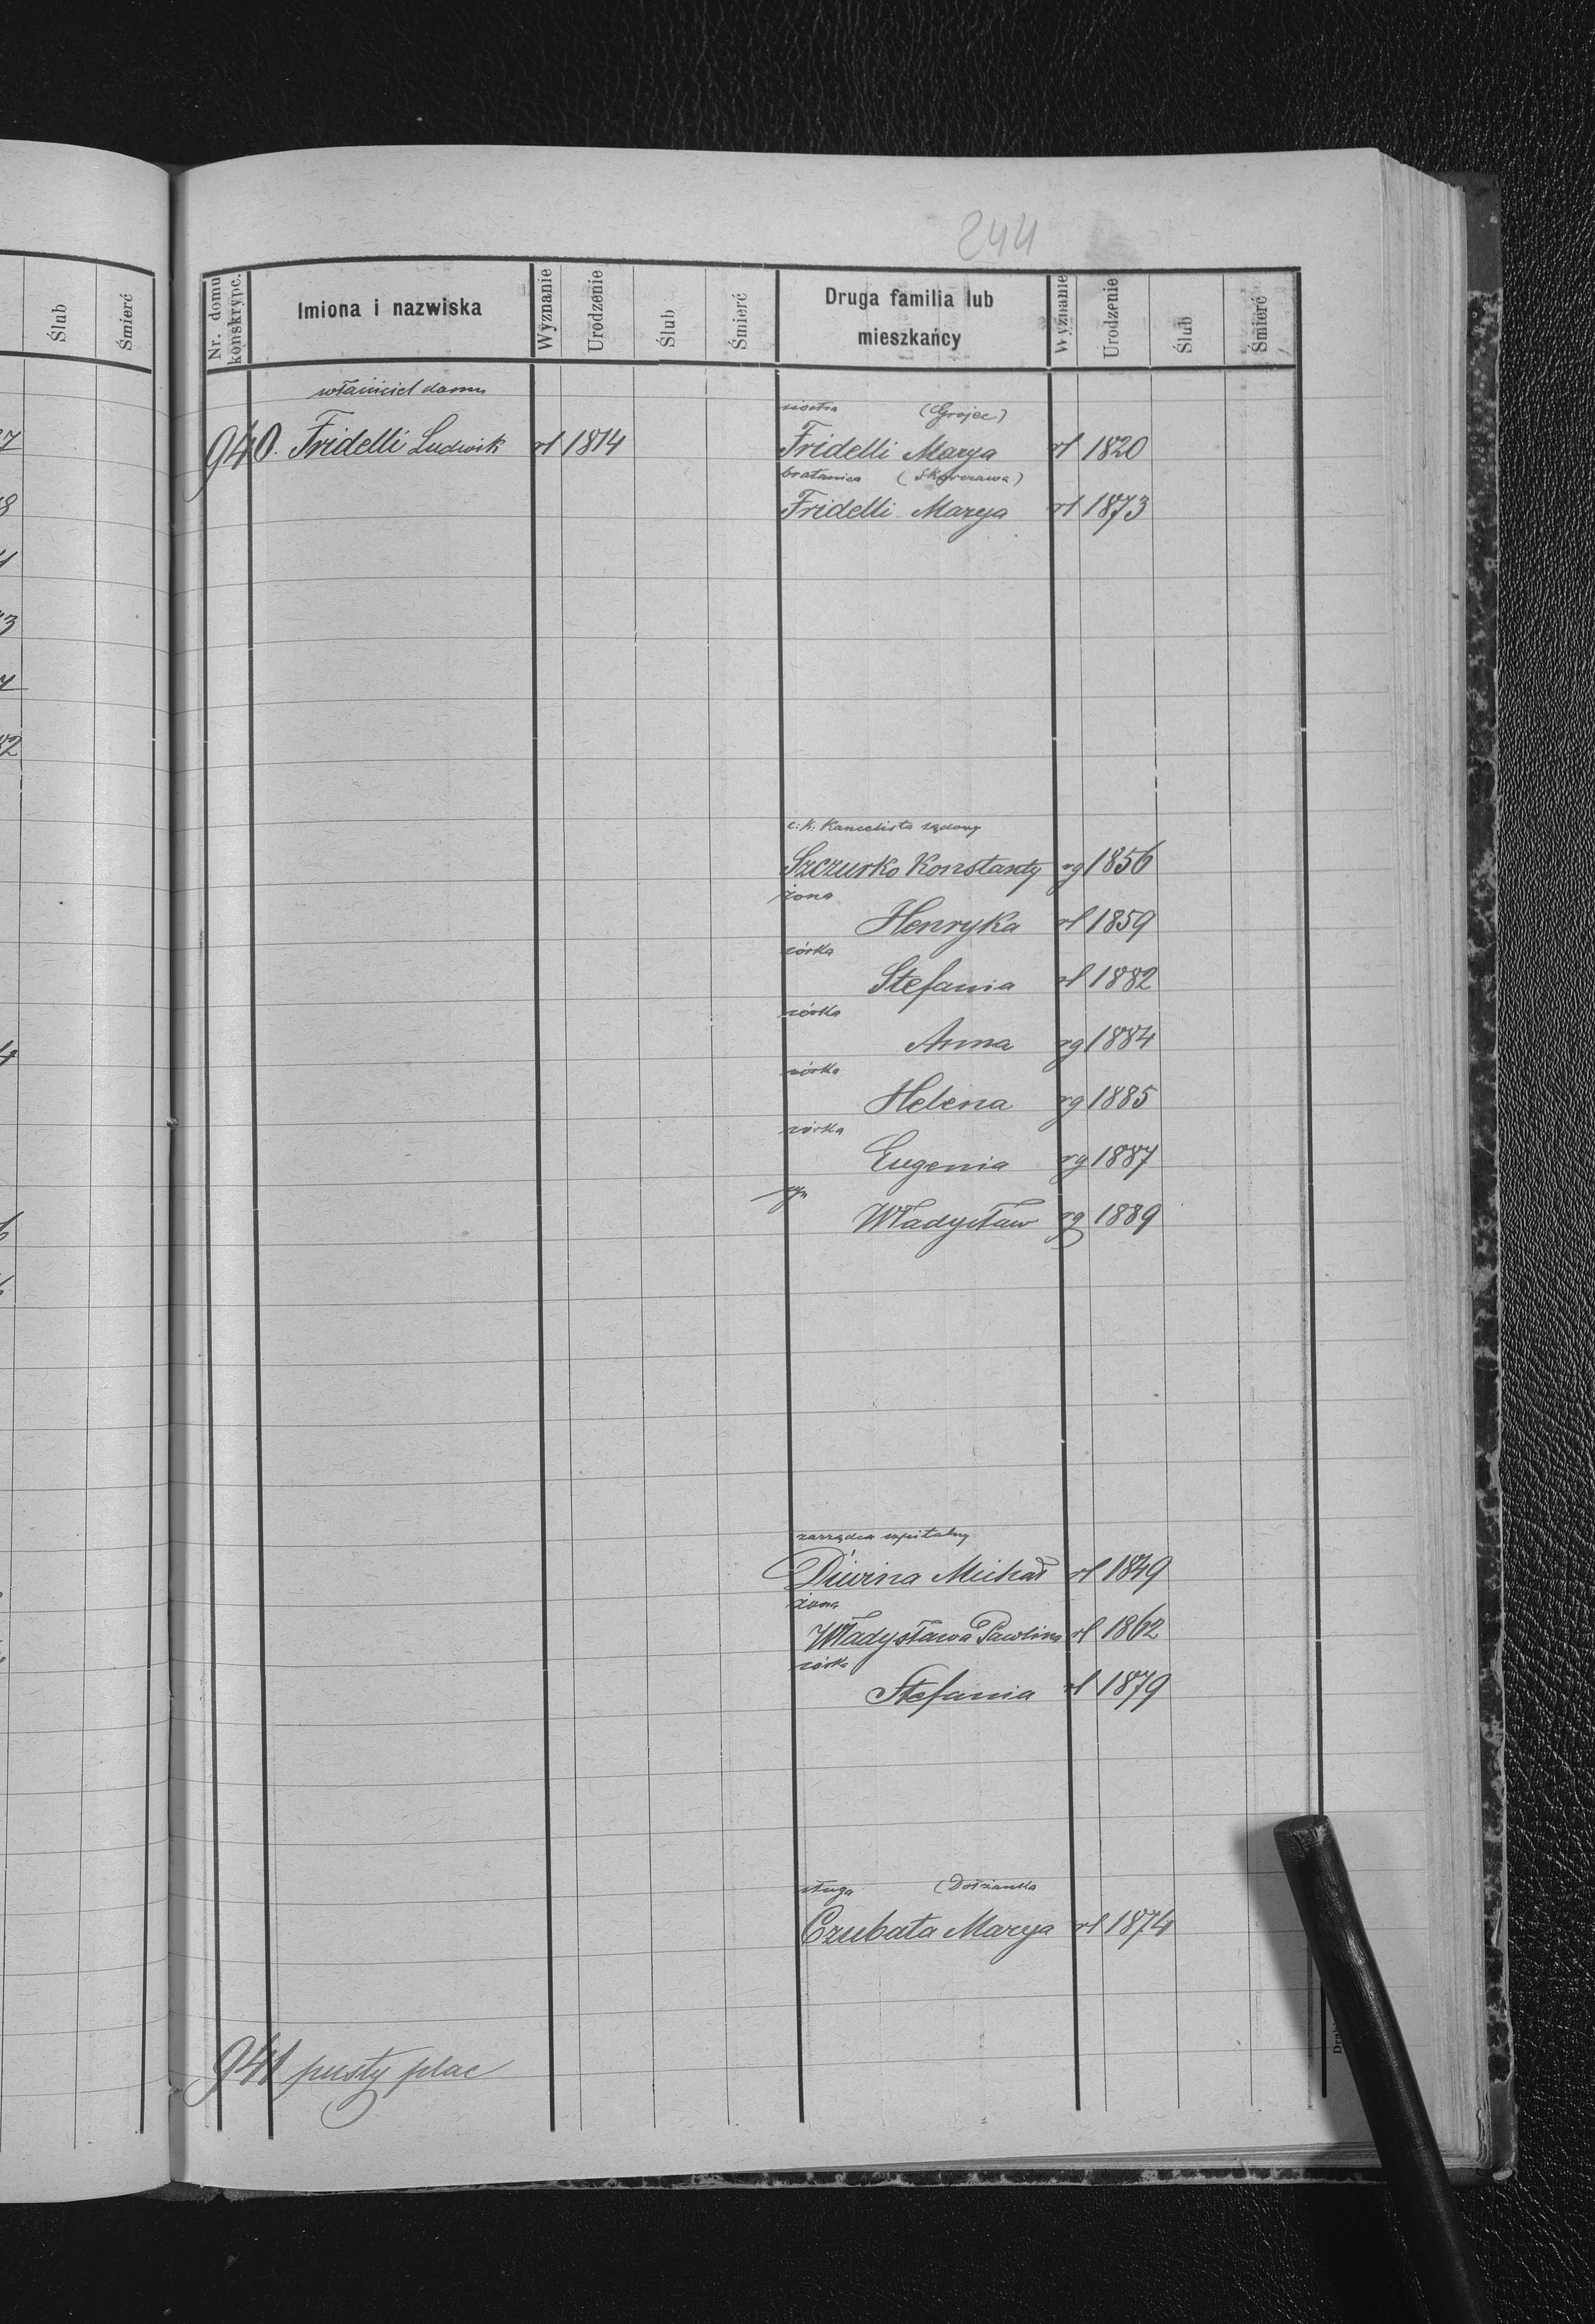 244
Ślub
Śmierć
Nr. domu konskrypc.
Imiona i nazwiska
Wyznanie
Urodzenie
Ślub
Śmierć
Druga familia lub
mieszkańcy
Wyznanie
Urodzenie
Ślub
Śmierć
właściciel domu
940. Fridelli Ludwik rł 1814
siostra (Grojec)
Fridelli Marya rł 1820
bratanica
Fridelli Marya rł 1873
c. k. Kancelista sądowy
Szczurko Konstanty rg 1856
żona
Henryka rł 1859
córka
Stefania rł 1882
córka
Anna rg 1884
córka
Helena rg 1885
córka
Eugenia rg 1887
syn
Władysław rg 1889
zarządca szpitalny
Michał rł 1849
żona
Władysława Pawlina rł 1862
córka
Stefania rł 1879
sługa
Czubata Marya rł 1874
941 pusty plac